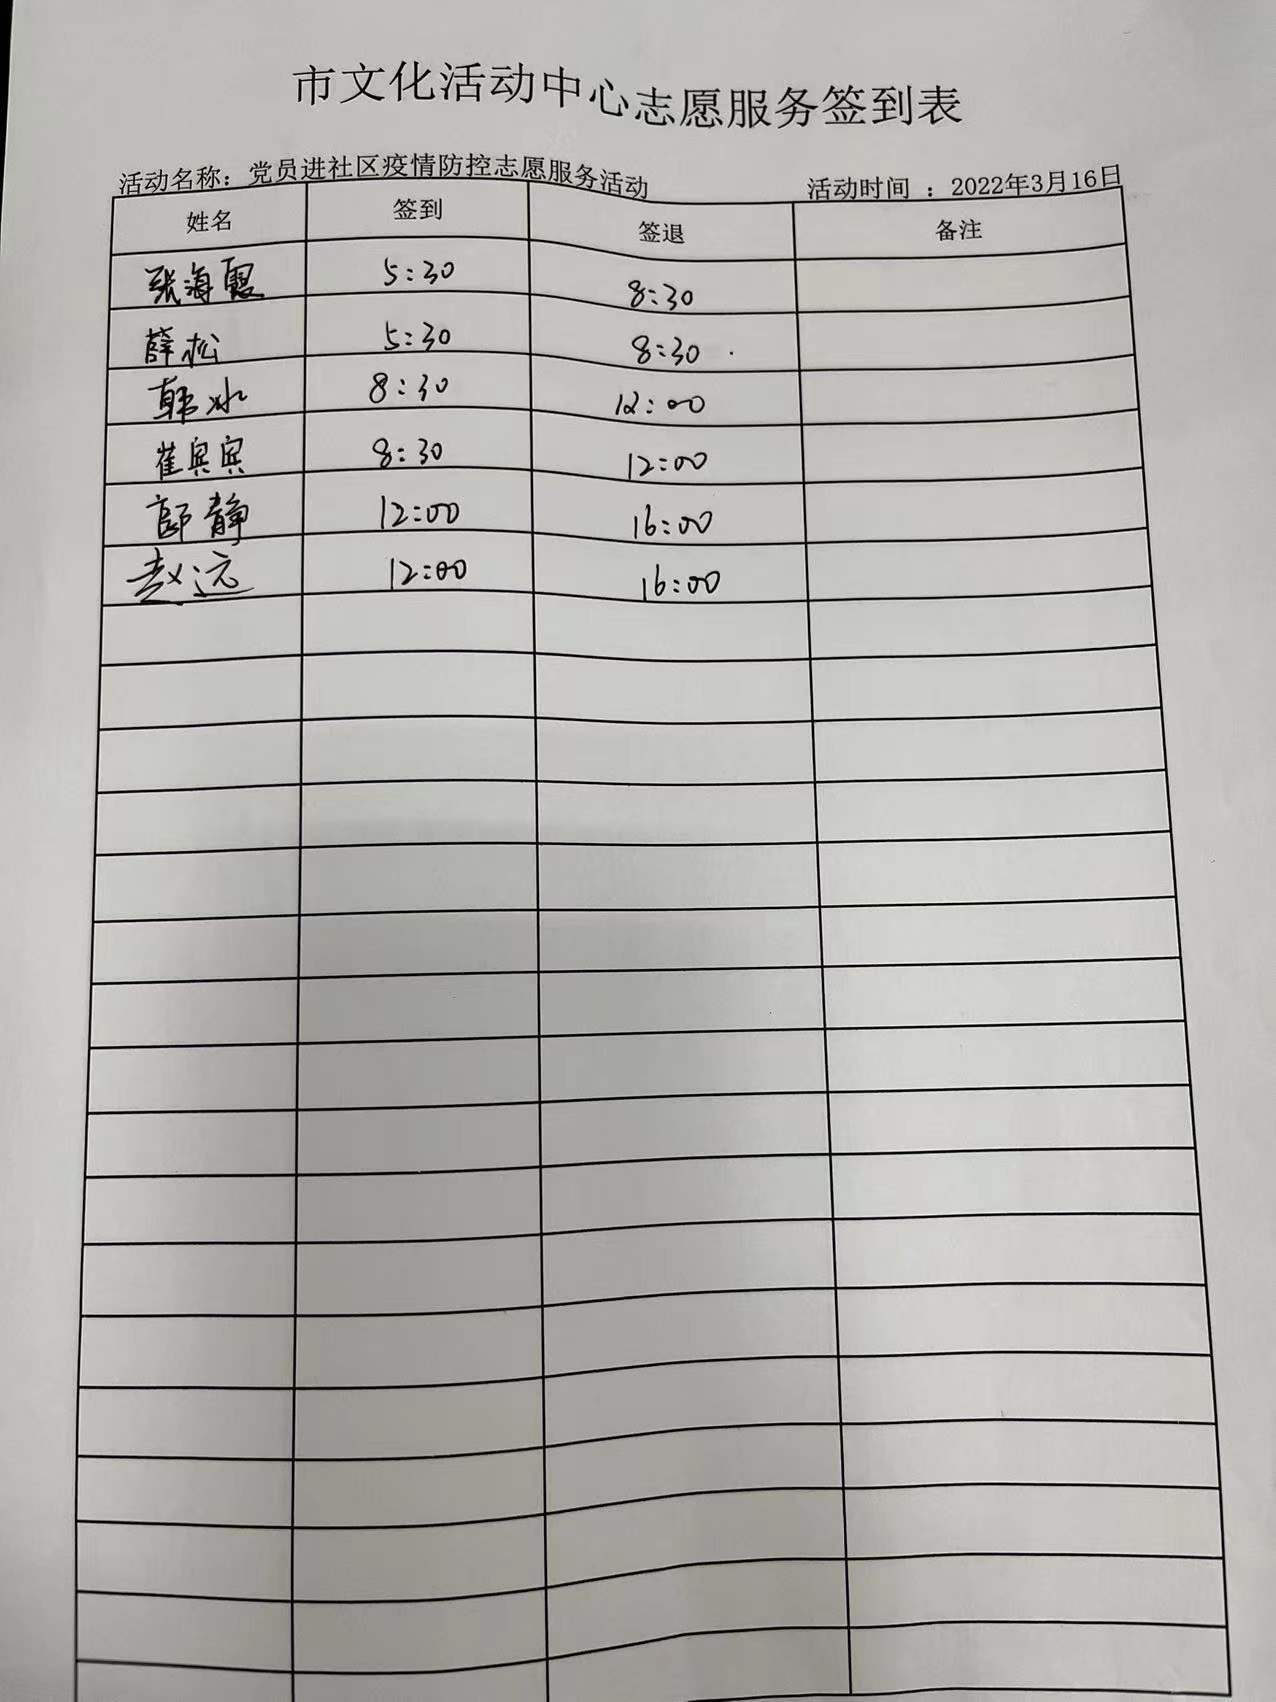 市文化活动中心志愿服务签到表
活动名称：党员进社区疫情防控志愿服务活动 活动时间 ：2022年3月16日
姓名 签到 签退 备注
张海霞 5:30 8:30
薛松 5:30 8:30
韩冰 8:30 12:00
崔宾宾 8:30 12:00
郭静 12:00 16:00
赵远 12:00 16:00